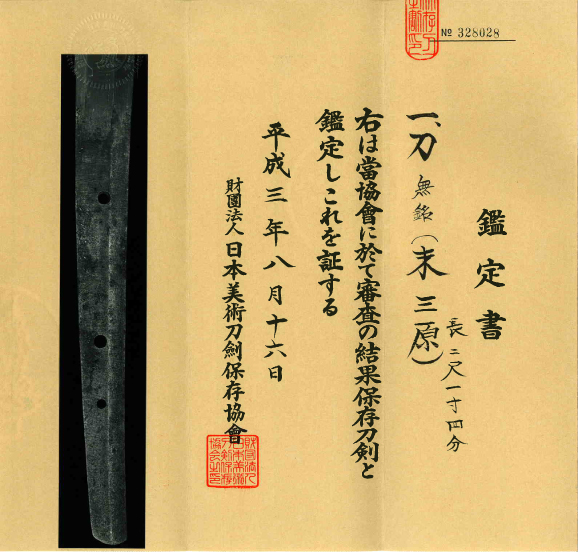 № 328028
鑑定書
一、刀 無銘(末三原)
長 二尺一寸四分
右は當協會に於て審査の結果保存刀剣と
鑑定しこれを証する
平成三年八月十六日
財團法人日本美術刀劍保存協會